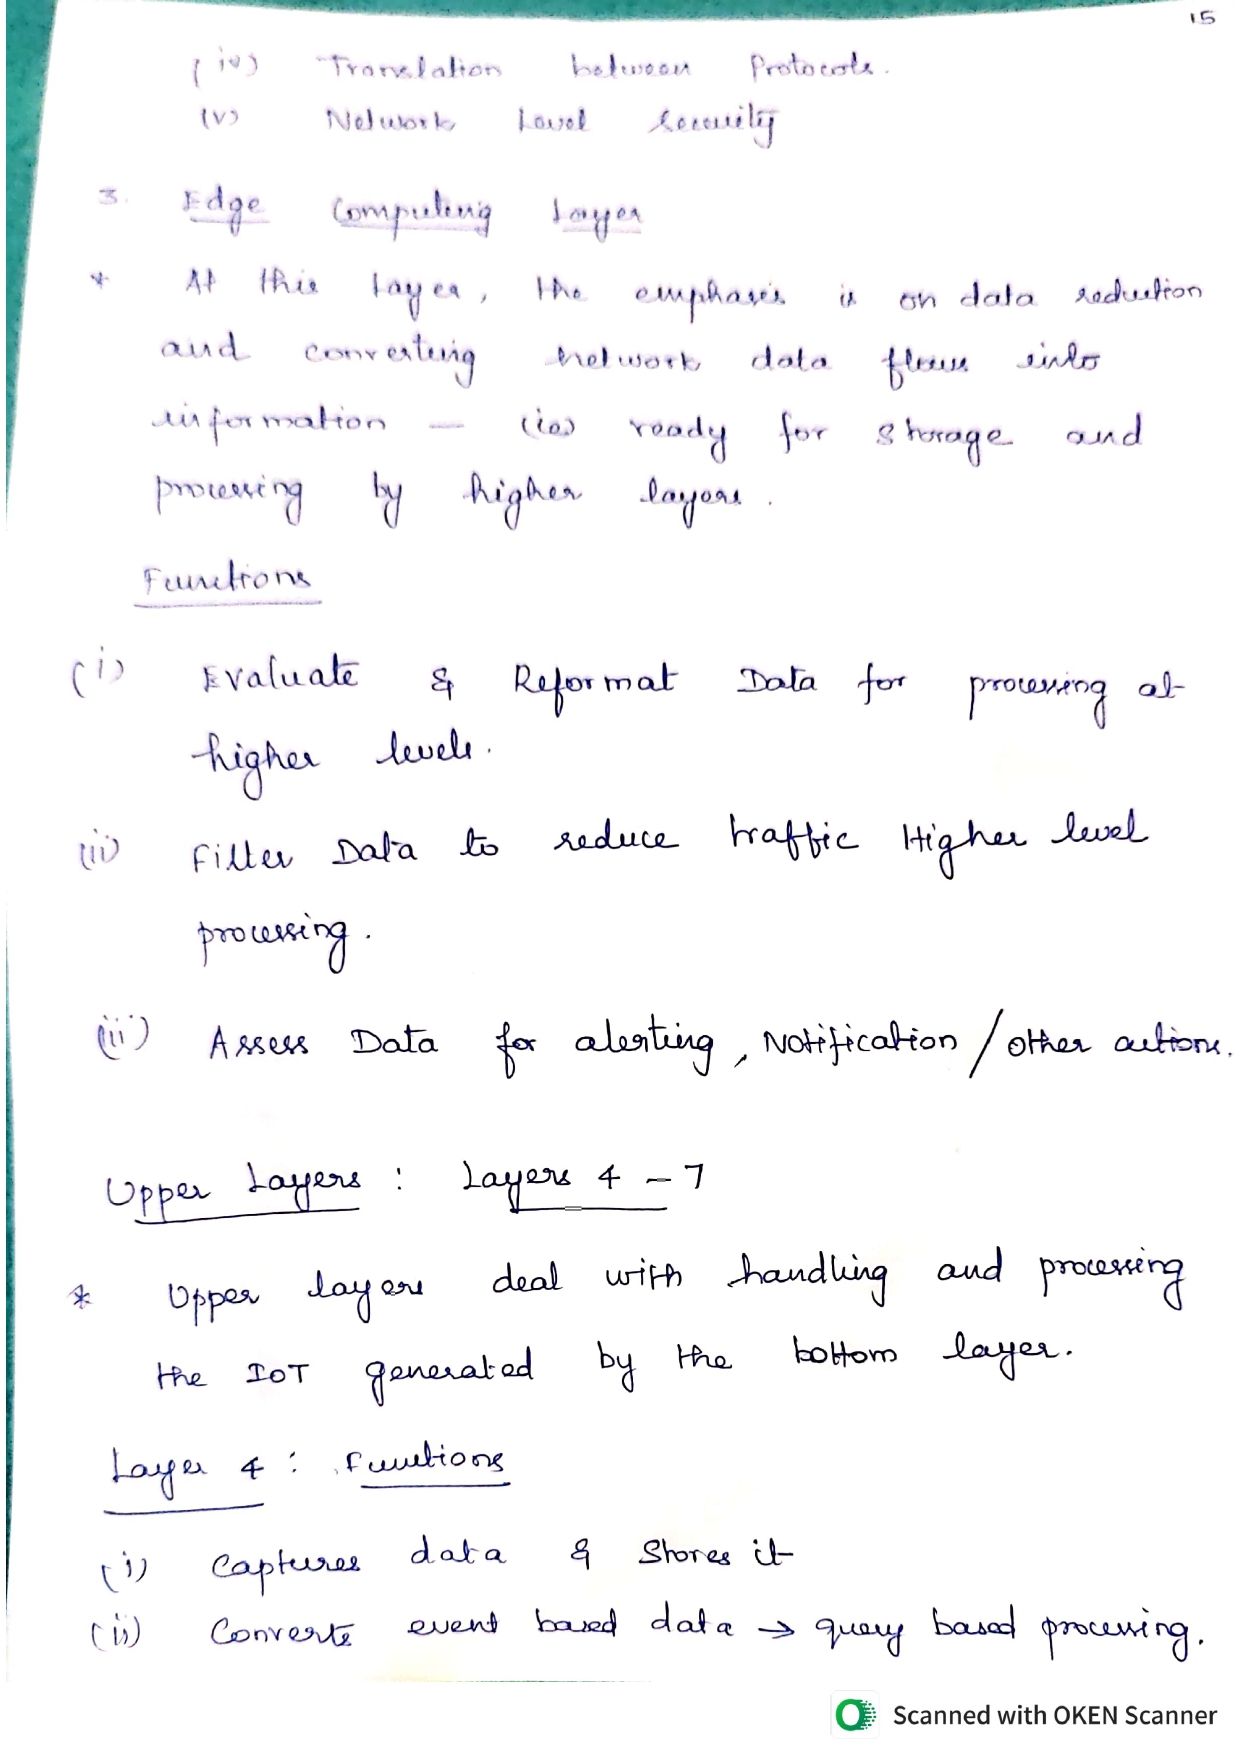 15
(iv) Translation between Protocols.
(v) Network Level security
3. Edge Computing Layer
* At this layer, the emphasis is on data reduction
and converting network data flows into
information — (ie) ready for storage and
processing by higher layers.
Functions
(i) Evaluate & Reformat Data for processing at
higher levels.
(ii) Filter Data to reduce traffic Higher level
processing.
(iii) Assess Data for alerting, Notification / other actions.
Upper Layers : Layers 4 - 7
* Upper layers deal with handling and processing
the IoT generated by the bottom layer.
Layer 4 : Functions
(i) Captures data & Stores it
(ii) Converts event based data → query based processing.
Scanned with OKEN Scanner